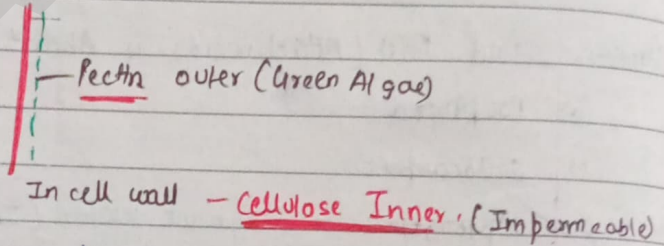 Pectin outer (Green Algae)
In cell wall - Cellulose Inner. (Impermeable)